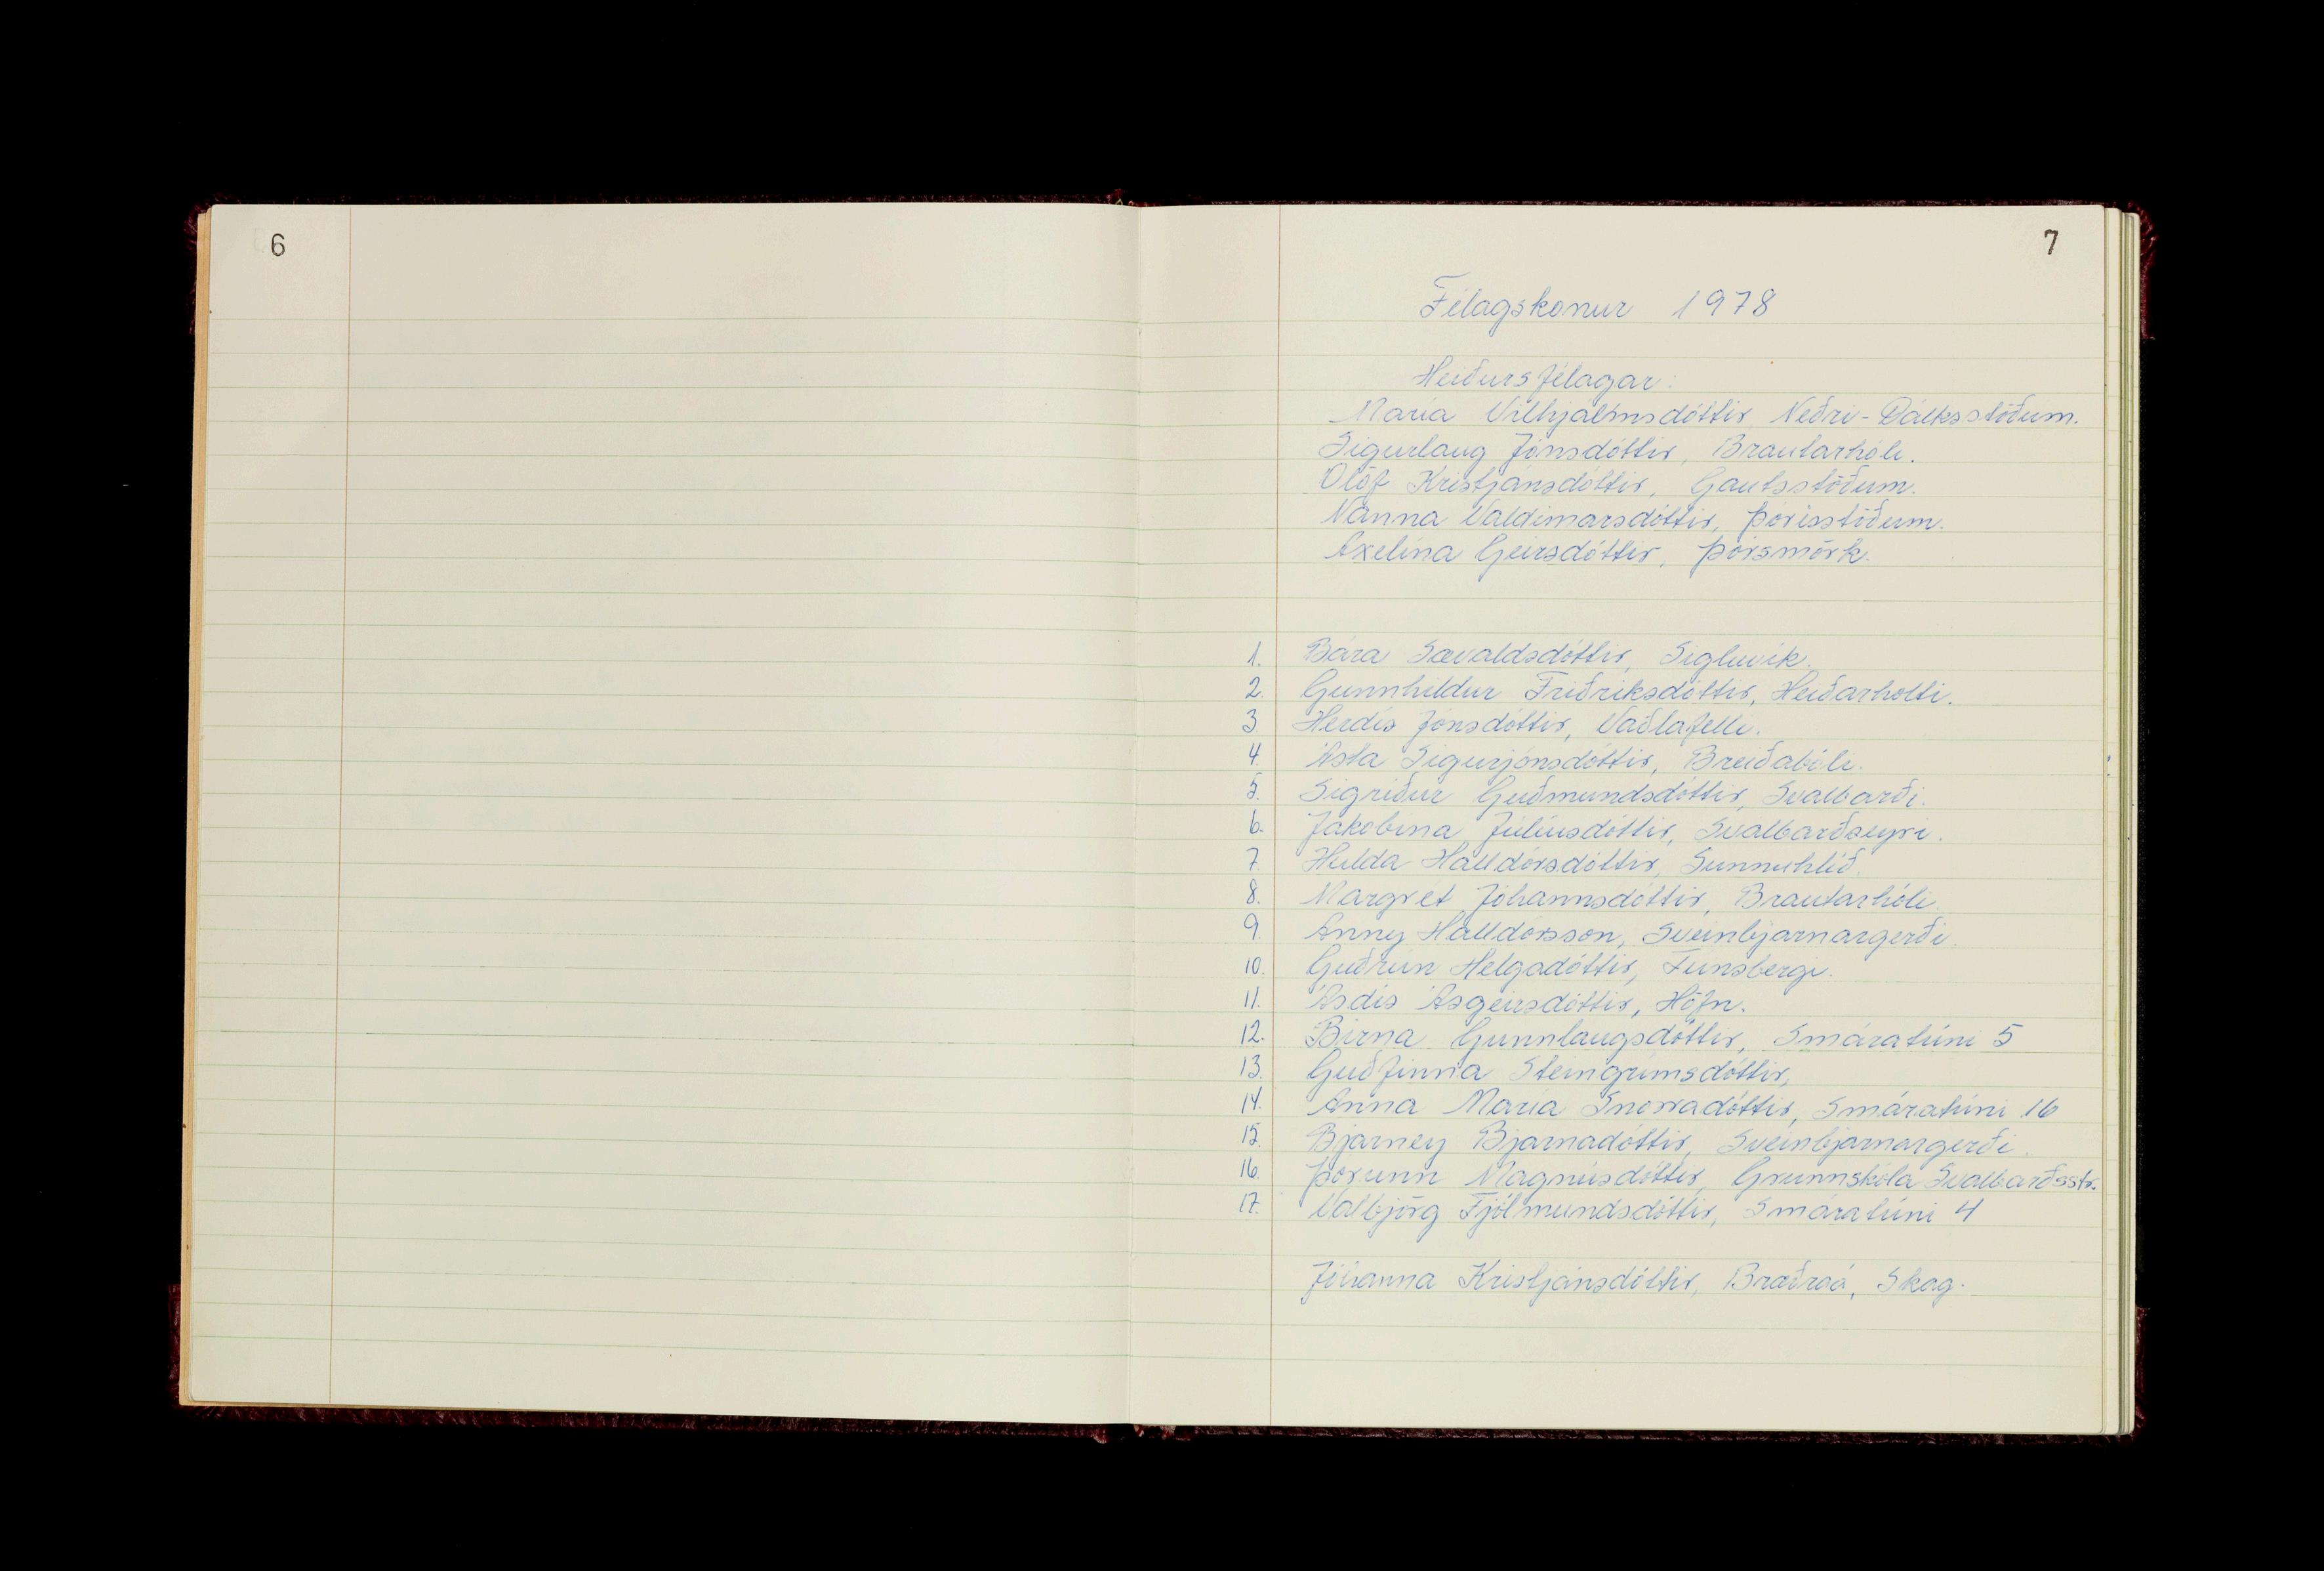 6
7
Félagskonur 1978
Heiðursfélagar:
María Vilhjálmsdóttir, Neðri-Dálksstöðum.
Sigurlaug Jónsdóttir, Brautarhóli.
Ólöf Kristjánsdóttir, Gautsstöðum.
Nanna Valdimarsdóttir, Þórisstöðum.
Axelína Geirsdóttir, Þórsmörk.
1. Bára Sævaldsdóttir, Sigluvík.
2. Gunnhildur Friðriksdóttir, Heiðarholti.
3 Herdís Jónsdóttir, Vaðlafelli.
4. Ásta Sigurjónsdóttir, Breiðabóli.
5. Sigríður Guðmundsdóttir, Svalbarði.
6. Jakobína Júlíusdóttir, Svalbarðseyri.
7 Hulda Halldórsdóttir, Sunnuhlíð.
8. Margret Jóhannsdóttir, Brautarhóli.
9. Anny Halldórsson, Sveinbjarnargerði.
10. Guðrún Helgadóttir, Túnsbergi.
11. Ásdís Ásgeirsdóttir, Höfn.
12. Birna Gunnlaugsdóttir, Smáratúni 5
13. Guðfinna Steingrímsdóttir,
14. Anna María Snorradóttir, Smáratúni 16
15. Bjarney Bjarnadóttir, Sveinbjarnargerði.
16. Þórunn Magnúsdóttir, Grunnskóla Svalbarðsstr.
17. Valbjörg Fjólmundsdóttir, Smáratúni 4
Jóhanna Kristjánsdóttir, Bræðraá, Skag.